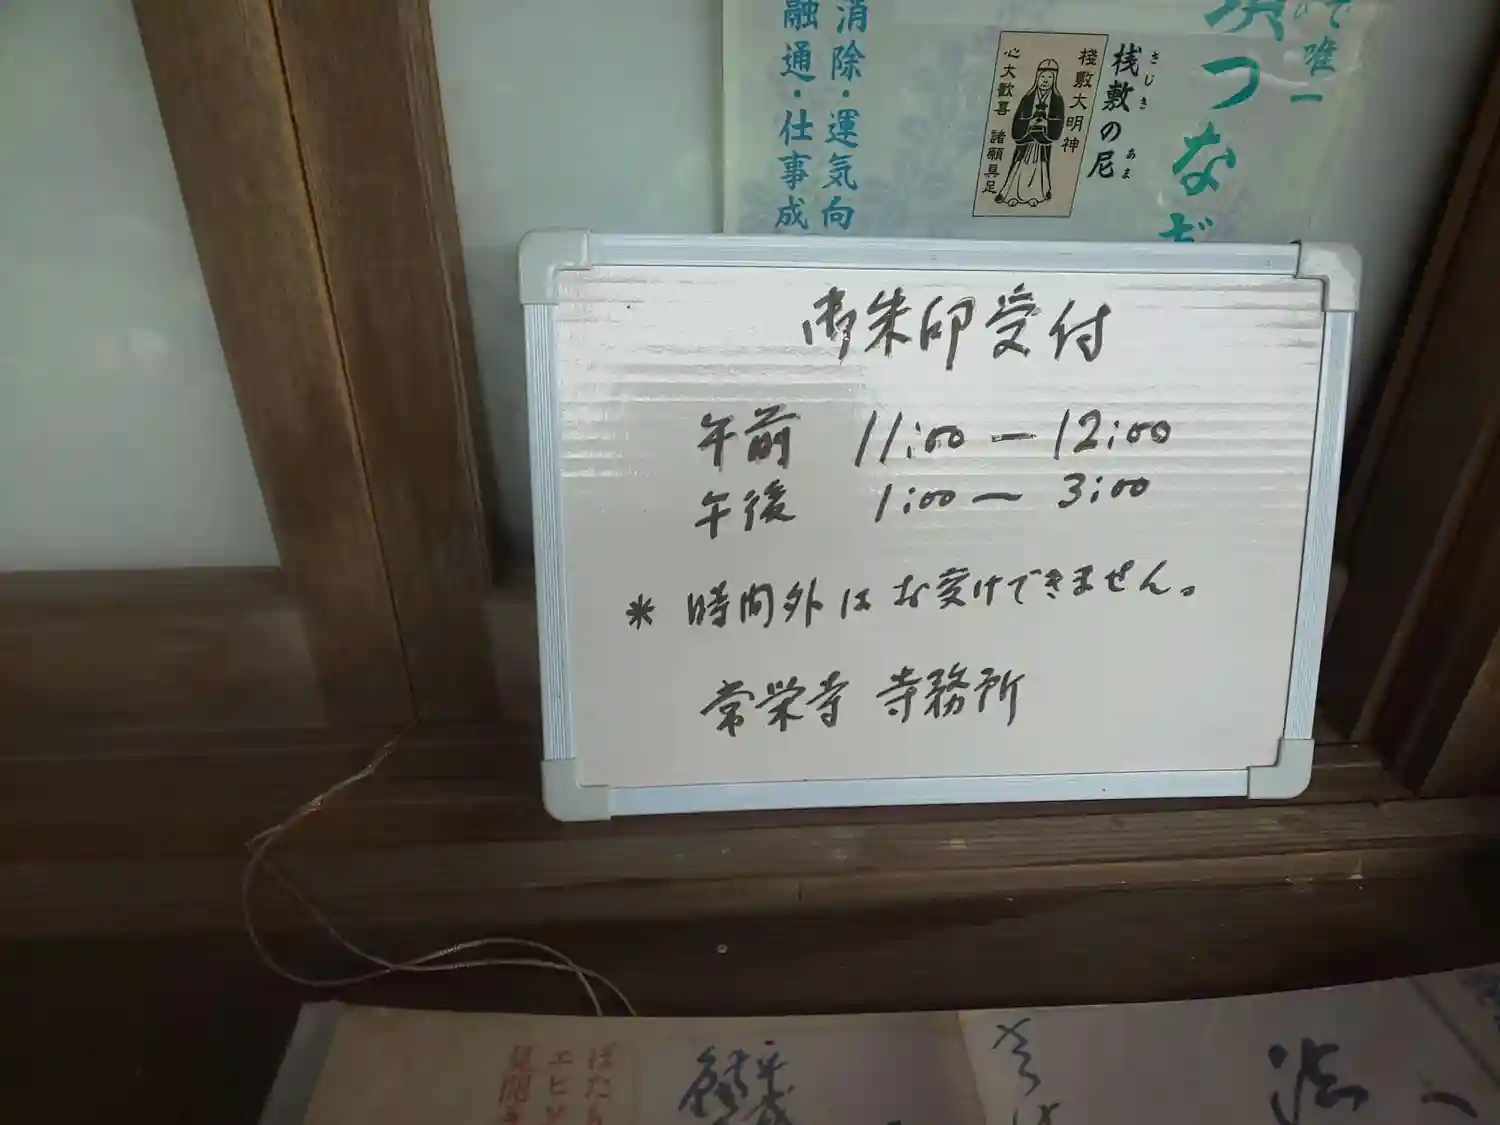 で唯一
つなぎ
桟敷の尼
さじき
あま
棧敷大明神
心大歓喜 諸願具足
消除・運気向
融通・仕事成
御朱印受付
午前 11:00 ー 12:00
午後 1:00 〜 3:00
＊ 時間外はお受けできません。
常栄寺 寺務所
ぼた
エピソ
見開き